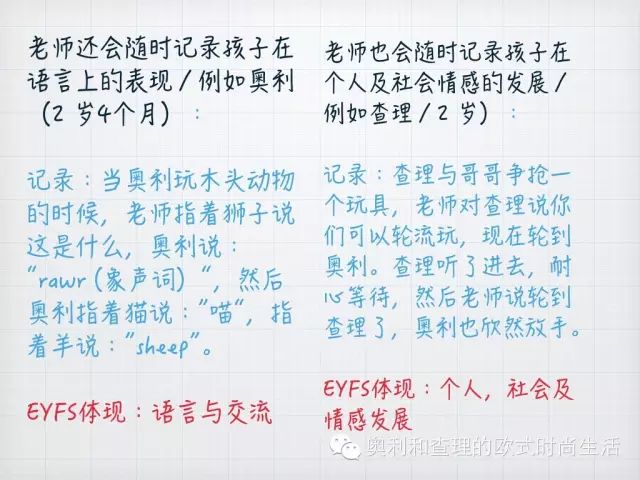 老师还会随时记录孩子在
语言上的表现/例如奥利
(2 岁4个月) :
记录:当奥利玩木头动物
的时候,老师指着狮子说
这是什么,奥利说:
"rawr (象声词) ",然后
奥利指着猫说:"喵",指
着羊说:"sheep"。
EYFS体现:语言与交流
老师也会随时记录孩子在
个人及社会情感的发展/
例如查理/2 岁) :
记录:查理与哥哥争抢一
个玩具,老师对查理说你
们可以轮流玩,现在轮到
奥利。查理听了进去,耐
心等待,然后老师说轮到
查理了,奥利也欣然放手。
EYFS体现:个人,社会及
情感发展
奥利和查理的欧式时尚生活